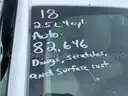 18
2.5L 4 cyl.
Auto.
82,646
Dings, scratches,
and surface rust.